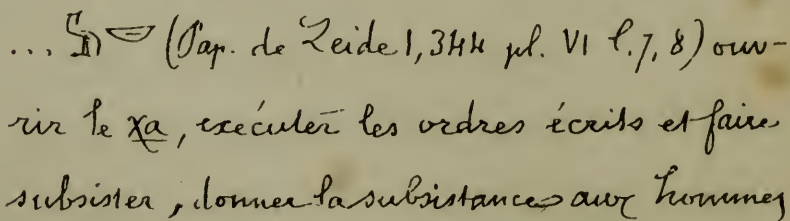 ... (Pap. de Leide 1, 344 pl. VI l. 7, 8) ouv-
rir le χa, exécuter les ordres écrits et faire
subsister, donner la subsistance aux hommes